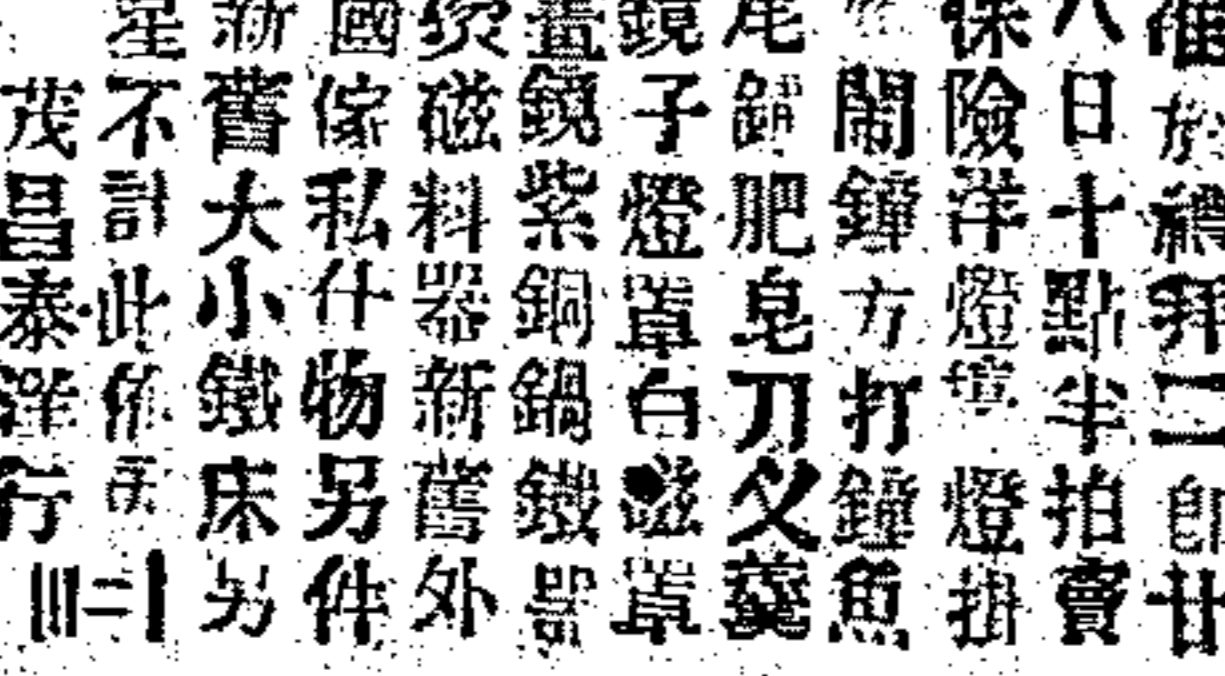 准於禮拜二即廿
八日十點半拍賣
保險洋燈 燈掛
鬧鐘方打鐘魚
尾 肥皂刀叉羹
鏡子燈罩白磁罩
畫鏡紫銅鍋鐵器
磁料器新舊外
國傢私什物另件
新舊大小鐵床另
星不計此佈
茂昌泰洋行